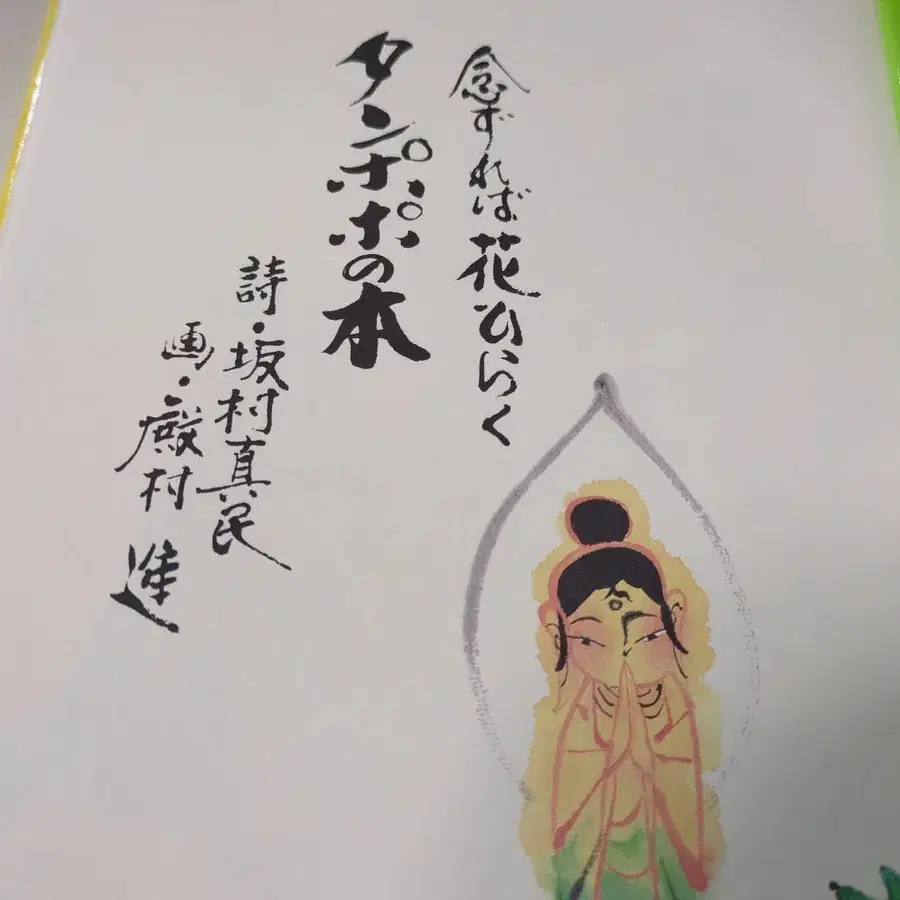 念ずれば花ひらく
タンポポの本
詩・坂村真民
画・殿村 進